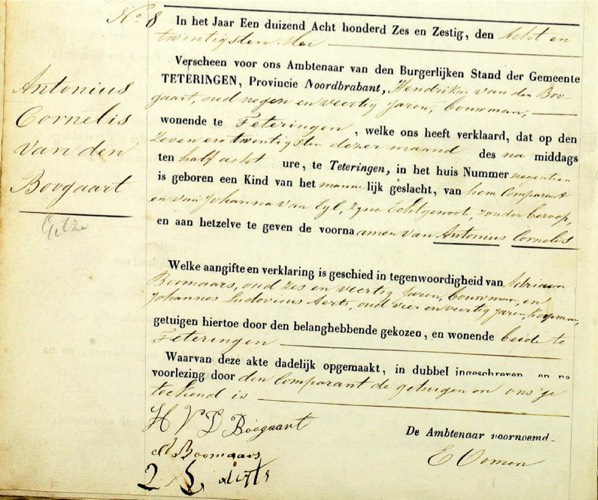 No. 8
In het Jaar Een duizend Acht honderd Zes en Zestig, den Acht en
twintigsten Mei
Antonius
Cornelis
van den
Boogaart
Gilze
Verscheen voor ons Ambtenaar van den Burgerlijken Stand der Gemeente
TETERINGEN, Provincie Noordbrabant, Hendrikus van den Boo-
gaart, oud negen en veertig Jaren, bouwman,
wonende te Teteringen, welke ons heeft verklaard, dat op den
Zeven en twintigsten dezer maand des na middags
ten half acht ure, te Teteringen, in het huis Nummer
is geboren een Kind van het mannelijk geslacht, van hem Comparant
en van Johanna van Eyl, zyne Echtgenoot, zonder beroep,
en aan hetzelve te geven de voornamen van Antonius Cornelis
Welke aangifte en verklaring is geschied in tegenwoordigheid van Adriaan
Boomaars, oud zes en veertig Jaren, bouwman, en
Johannes Ludovicus Aerts, oud vier en veertig Jaren,
getuigen hiertoe door den belanghebbende gekozen, en wonende beide te
Teteringen
Waarvan deze akte dadelijk opgemaakt, in dubbel ingeschreven en na
voorlezing door den Comparant de getuigen en ons ge
teekend is
H V D Boogaart
A Boomaars
Aerts
De Ambtenaar voornoemd
E Oomen